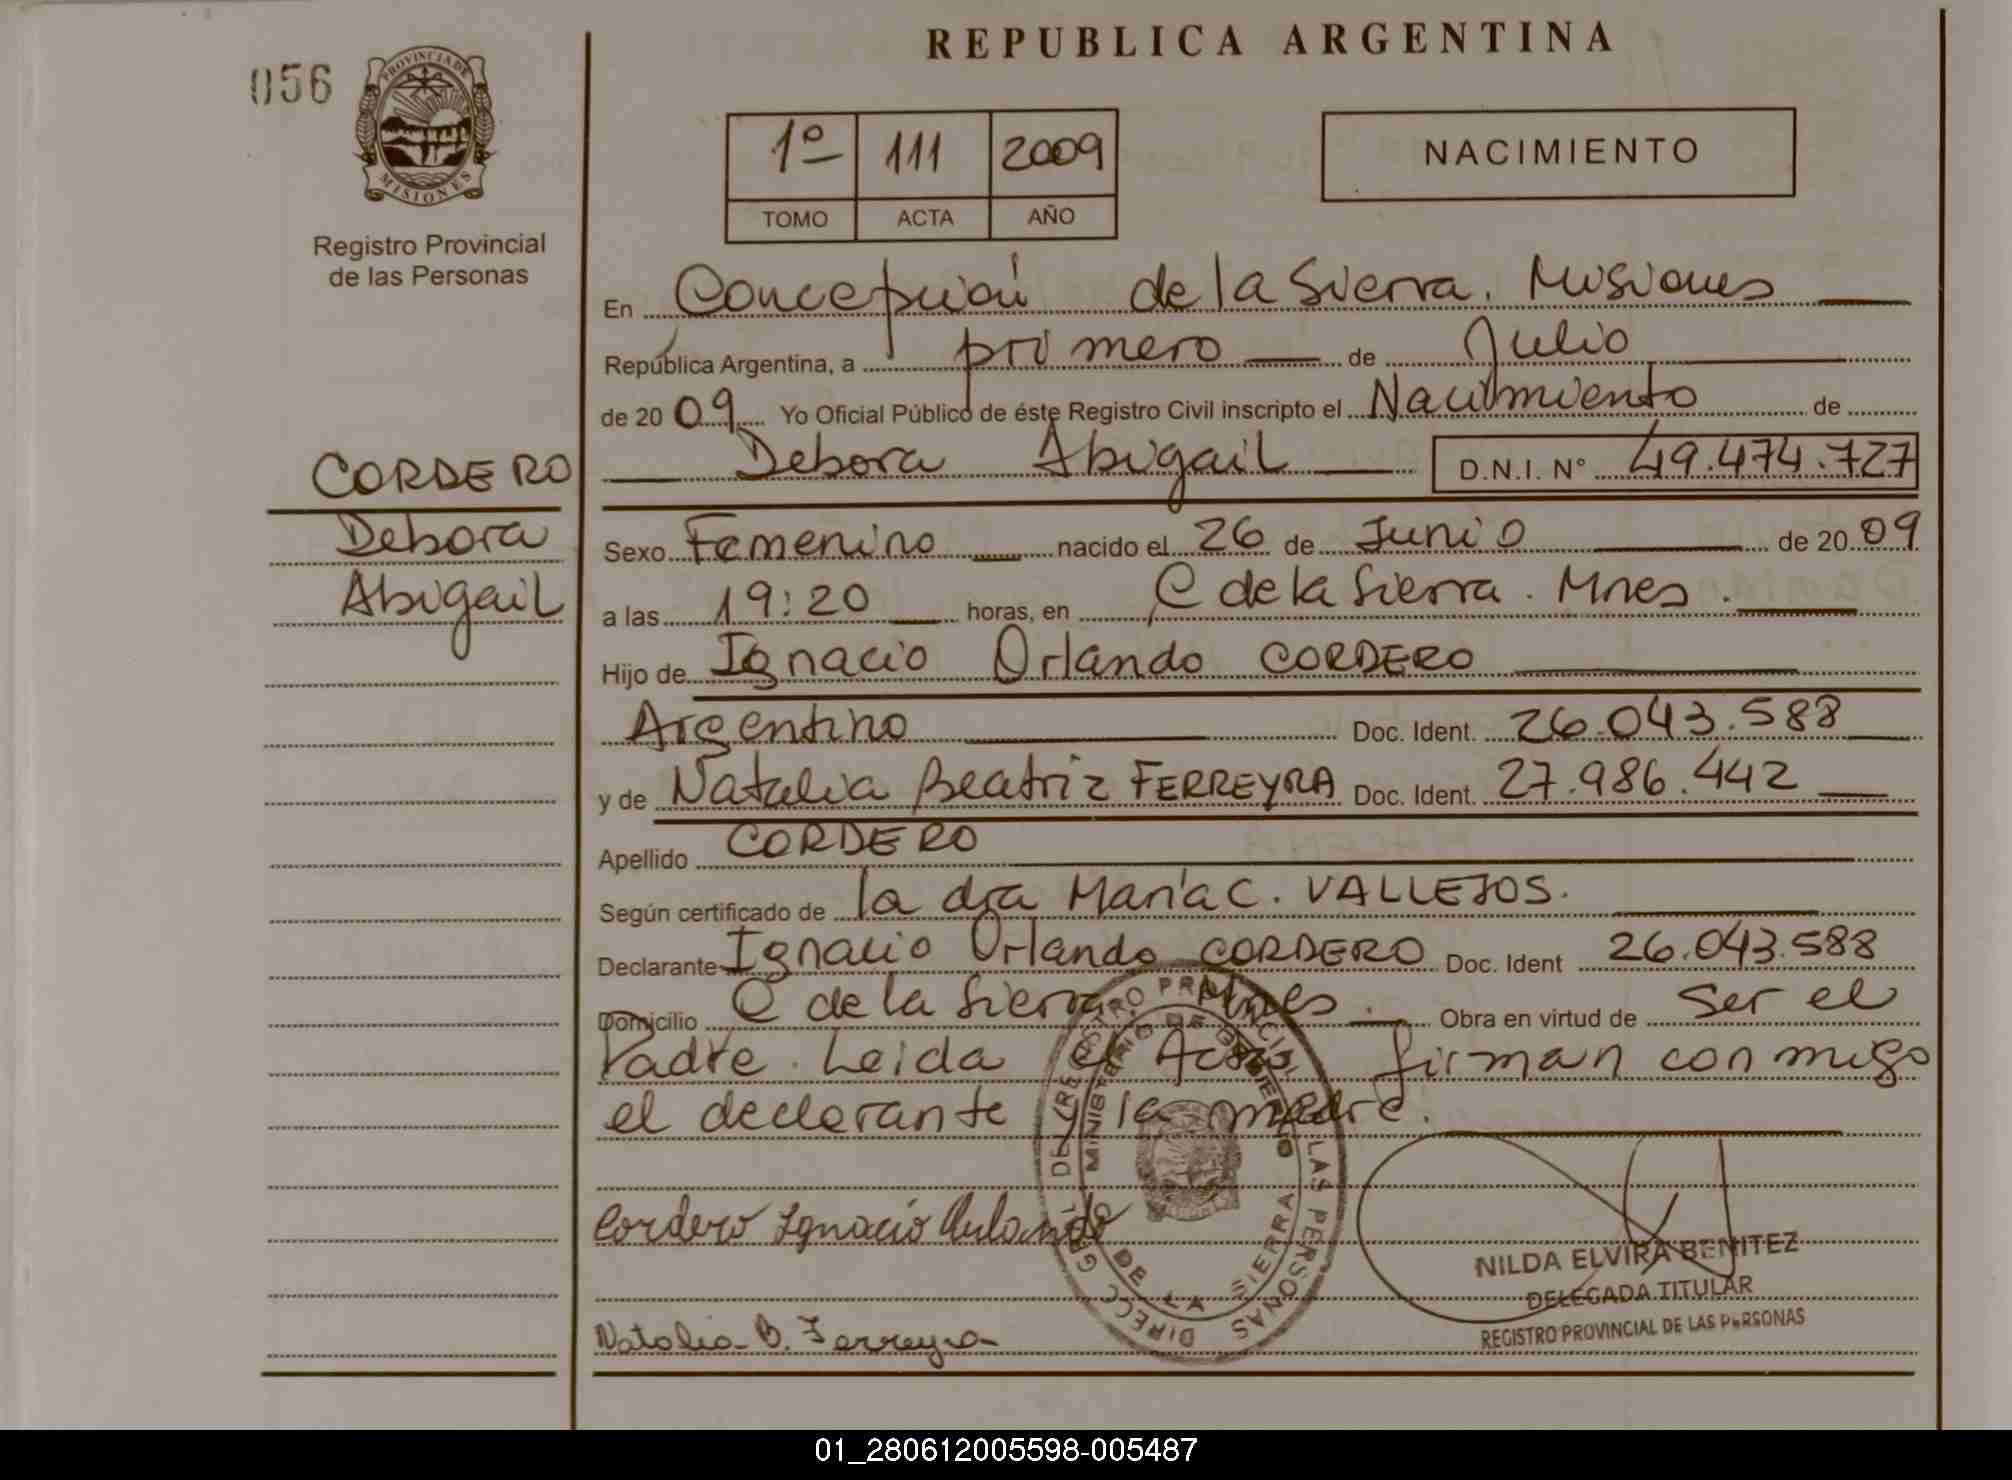 REPUBLICA ARGENTINA
056
PROVINCIA DE
MISIONES
Registro Provincial
de las Personas
1º 111 2009
TOMO ACTA AÑO
NACIMIENTO
En Concepción de la Sierra. Misiones
República Argentina, a primero de Julio
de 2009 Yo Oficial Público de éste Registro Civil inscripto el Nacimiento de
Debora Abigail D.N.I. Nº 49.474.727
CORDERO
Debora
Abigail
Sexo Femenino nacido el 26 de Junio de 2009
a las 19:20 horas, en C de la Sierra. Mnes.
Hijo de Ignacio Orlando CORDERO
Argentino Doc. Ident. 26.043.588
y de Natalia Beatriz FERREYRA Doc. Ident. 27.986.442
Apellido CORDERO
Según certificado de la dra María C. VALLEJOS.
Declarante Ignacio Orlando CORDERO Doc. Ident 26.043.588
Domicilio C de la Sierra. Mnes. Obra en virtud de Ser el
Padre. Leida el Acta, firman con migo
el declarante y la madre.
DIRECC GRAL DEL REGISTRO PROVINCIAL LAS PERSONAS
MINISTERIO DE GOBIERNO
DE LA SIERRA
Cordero Ignacio Orlando
NILDA ELVIRA BENITEZ
DELEGADA TITULAR
REGISTRO PROVINCIAL DE LAS PERSONAS
Natalia B. Ferreyra
01_280612005598-005487